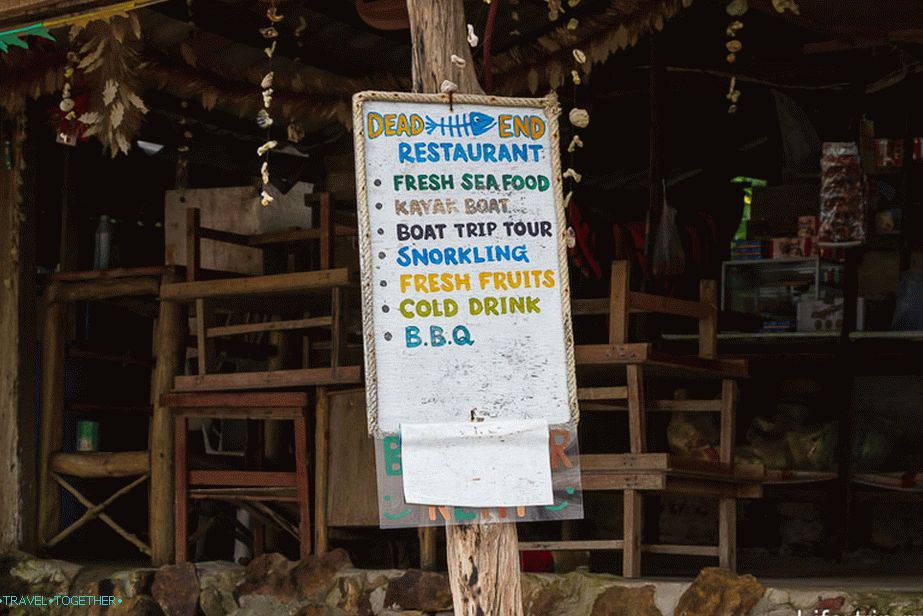 DEAD END
RESTAURANT
• FRESH SEA FOOD
• KAYAK BOAT
• BOAT TRIP TOUR
• SNORKLING
• FRESH FRUITS
• COLD DRINK
• B.B.Q
•TRAVEL•TOGETHER•